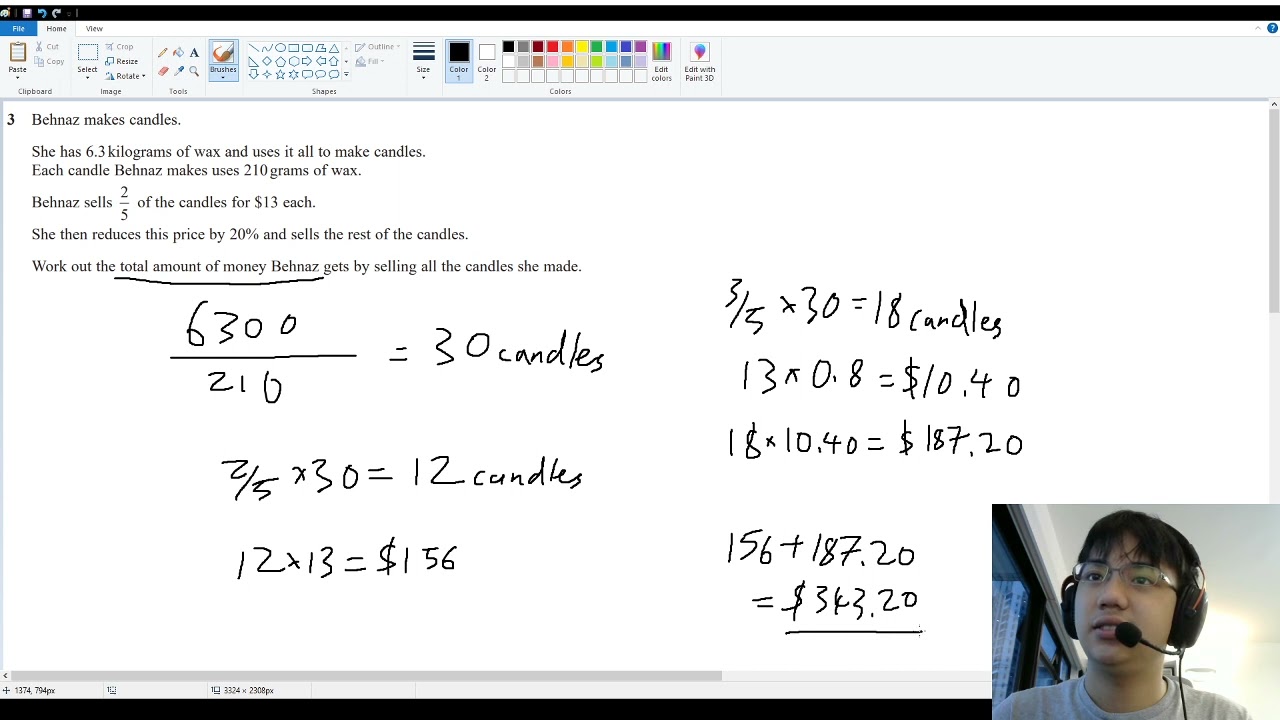 File Home View
Paste Cut Copy Select Crop Resize Rotate Brushes Outline Fill Size Color 1 Color 2 Edit colors Edit with Paint 3D
Clipboard Image Tools Shapes Colors
3 Behnaz makes candles.
She has 6.3 kilograms of wax and uses it all to make candles.
Each candle Behnaz makes uses 210 grams of wax.
Behnaz sells 2/5 of the candles for $13 each.
She then reduces this price by 20% and sells the rest of the candles.
Work out the total amount of money Behnaz gets by selling all the candles she made.
6300/210 = 30 candles
2/5 × 30 = 12 candles
12 × 13 = $156
3/5 × 30 = 18 candles
13 × 0.8 = $10.40
18 × 10.40 = $187.20
156 + 187.20
= $343.20
1374, 794px 3324 × 2308px